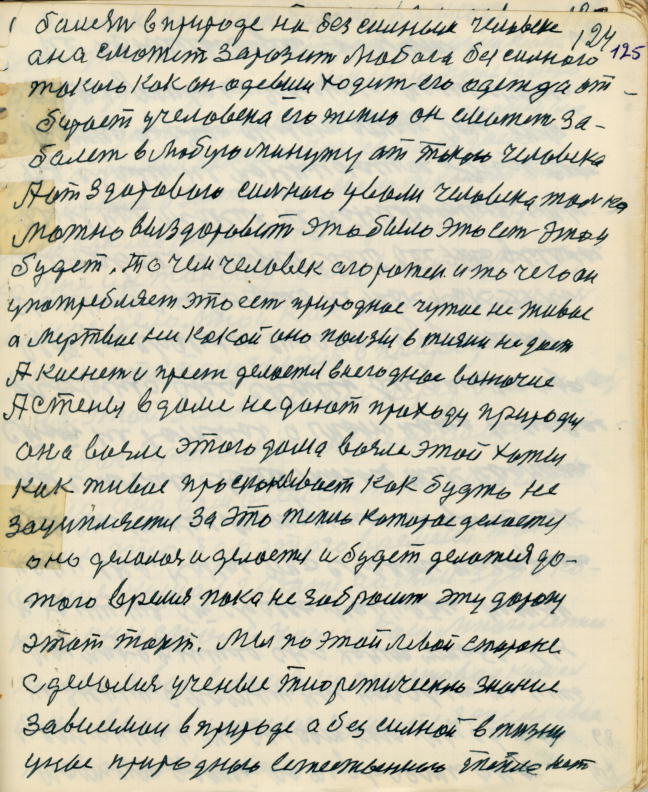 124
125
болезн в природе на без силным человеке
она сможет Заразит Любога бессилного
токого как он одевши ходит его одежда от
бирает у человека его тепло он сможет за-
болет в Любую минуту от такого человека
А от Здорового силного уволи человека толко
можно выздоровит это было это ест этому
будет. То чем человек огорожен и то чего он
употребляет это ест природное чужое не живое
а мертвое ни какой оно ползы в жизни не даст
А киснет и преет делается внегодное воточие
А Стены в доме не дают проходу природы
она возле этого дома возле этой хаты
как живое проскакивает как будто не
зацепляется За Это тепло которое делается
оно делалося и делается и будет делатся до-
того время пока не забросит эту дорогу
этот тект. Мы по этой левой стороне
Сделался ученые тиоретическою знание
Зависемои в природе а без силной в жизни
у нас природного естественного тепло нет